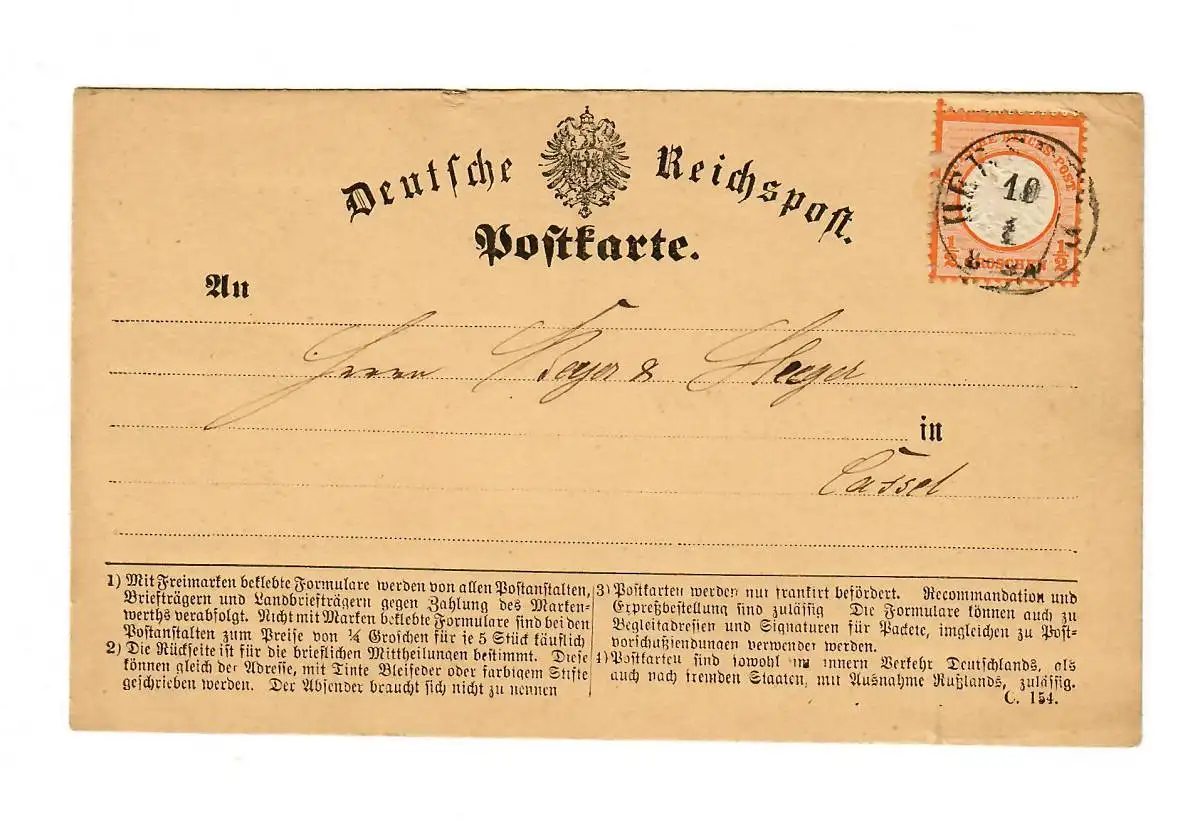 Deutsche Reichspost.
Postkarte.
DEUTSCHE REICHS-POST
1/2 GROSCHEN 1/2
10
1
An
Herrn Beyer & Heeger
in
Cassel
1) Mit Freimarken beklebte Formulare werden von allen Postanstalten,
Briefträgern und Landbriefträgern gegen Zahlung des Marken-
werths verabfolgt. Nicht mit Marken beklebte Formulare sind bei den
Postanstalten zum Preise von ¼ Groschen für je 5 Stück käuflich
2) Die Rückseite ist für die brieflichen Mittheilungen bestimmt. Diese
können gleich der Adresse, mit Tinte Bleifeder oder farbigem Stifte
geschrieben werden. Der Absender braucht sich nicht zu nennen
3) Postkarten werden nur frankirt befördert. Recommandation und
Expreßbestellung sind zulässig Die Formulare können auch zu
Begleitadressen und Signaturen für Packete, imgleichen zu Post-
vorschußsendungen verwendet werden.
4) Postkarten sind sowohl im innern Verkehr Deutschlands, als
auch nach fremden Staaten, mit Ausnahme Rußlands, zulässig.
C. 154.